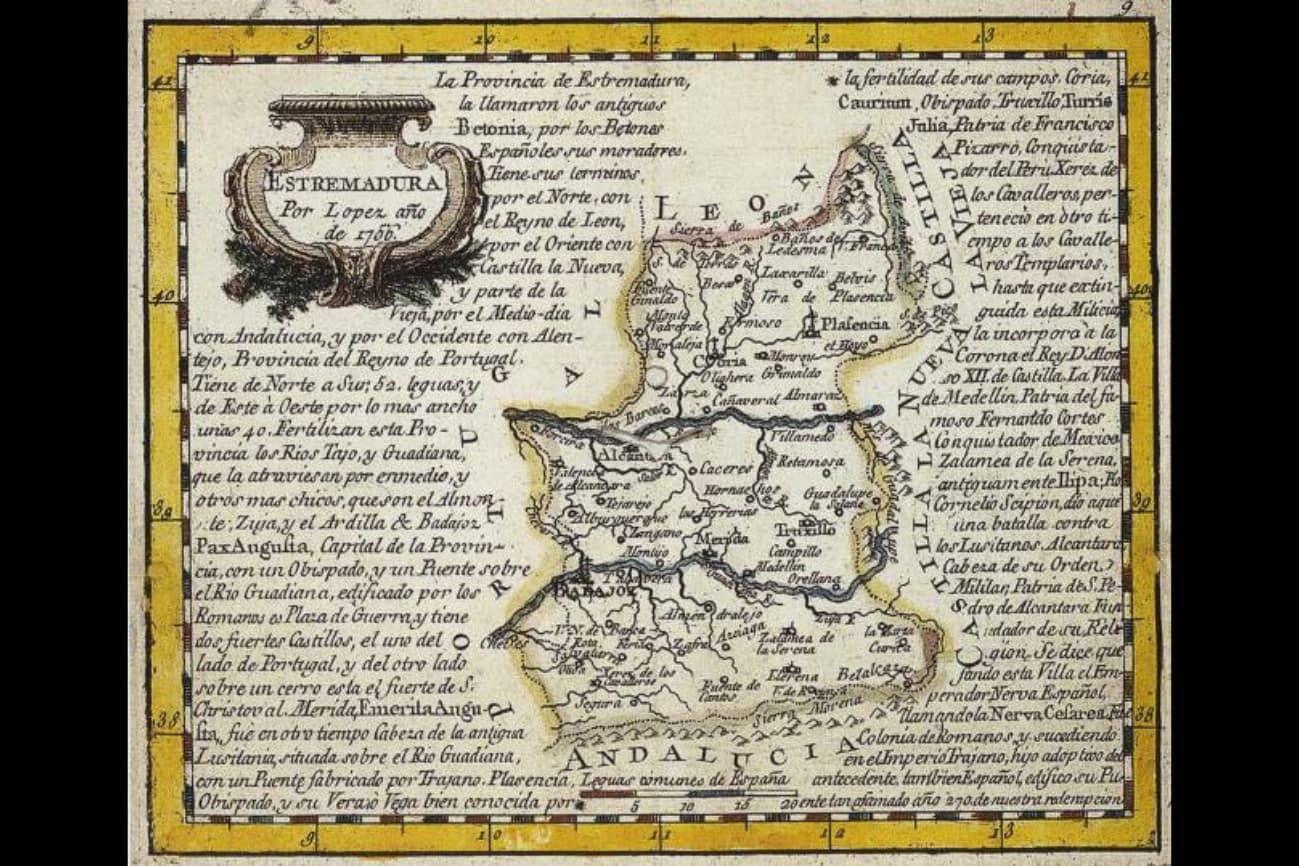 ESTREMADURA
Por Lopez año
de 1766.
La Provincia de Estremadura,
la llamaron los antiguos
Betonia, por los Betones
Españoles sus moradores.
Tiene sus terminos,
por el Norte, con
el Reyno de Leon,
por el Oriente con
Castilla la Nueva,
y parte de la
Vieja, por el Medio-dia
con Andalucia, y por el Occidente con Alen-
tejo, Provincia del Reyno de Portugal.
Tiene de Norte a Sur, 52. leguas, y
de Este à Oeste por lo mas ancho
unas 40. Fertilizan esta Pro-
vincia los Rios Tajo, y Guadiana,
que la atraviesan por enmedio, y
otros mas chicos, que son el Almon-
te, Zuja, y el Ardilla & Badajoz
Pax Augusta, Capital de la Provin-
cia, con un Obispado, y un Puente sobre
el Rio Guadiana, edificado por los
Romanos es Plaza de Guerra, y tiene
dos fuertes Castillos, el uno del
lado de Portugal, y del otro lado
sobre un cerro esta el fuerte de S.
Christoval. Merida, Emerita Augu-
sta, fue en otro tiempo Cabeza de la antigua
Lusitania, situada sobre el Rio Guadiana,
con un Puente fabricado por Trajano. Plasencia,
Obispado, y su Vera, o Vega bien conocida por
la fertilidad de sus campos. Coria,
Caurium, Obispado. Truxillo, Turris
Julia, Patria de Francisco
Pizarro, Conquista-
dor del Perù. Xeréz de
los Cavalleros, per-
teneciò en otro ti-
empo a los Cavalle-
ros Templarios,
hasta que extin-
guida esta Milicia
la incorporò à la
Corona el Rey D. Alon
so XII. de Castilla. La Villa
de Medellin, Patria del fa-
moso Fernando Cortes
Conquistador de Mexico
Zalamea de la Serena,
antiguamente Ilipa;
Cornelio Scipion, diò aqui
una batalla contra
los Lusitanos. Alcantara,
Cabeza de su Orden
Militar, Patria de S. Pe-
dro de Alcantara Fun-
dador de su Reli-
gion. Se dice que
fundo esta Villa el Em-
perador Nerva Español,
llamandola Nerva Cesarea,
Colonia de Romanos, y sucediendo
en el Imperio Trajano, hijo adoptivo del
antecedente, tambien Español, edifico su Pu-
ente tan afamado año 270. de nuestra redempcion
LEON
CASTILLA LA VIEJA
CASTILLA LA NUEVA
PORTUGAL
ANDALUCIA
Sierra de Baños
Baños de Ledesma
Fuente Ginaldo
Besa
Laxarilla
Belvis
Vera de Plasencia
Plasencia
el Hoyo
Moraleja
Coria
Monroy
Grimaldo
Cañaveral
Almaraz
las Barcas
Alcantara
Villamedo
Retamosa
Caceres
Valencia de Alcantara
Guadalupe
Alburquerque
las Herrerias
Truxillo
Zangano
Merida
Campillo
Montijo
Medellin
Orellana
Talavera
BADAJOZ
Cheles
Zuja R.
Zafra
Zalamea de la Serena
la Zarza
Llerena
Xerez de los Cavalleros
Fuente de Cantos
Segura
Belalcazar
Sierra Morena
Leguas comunes de España
5 10 15 20
9 10 11 12 13
41 40 39 38